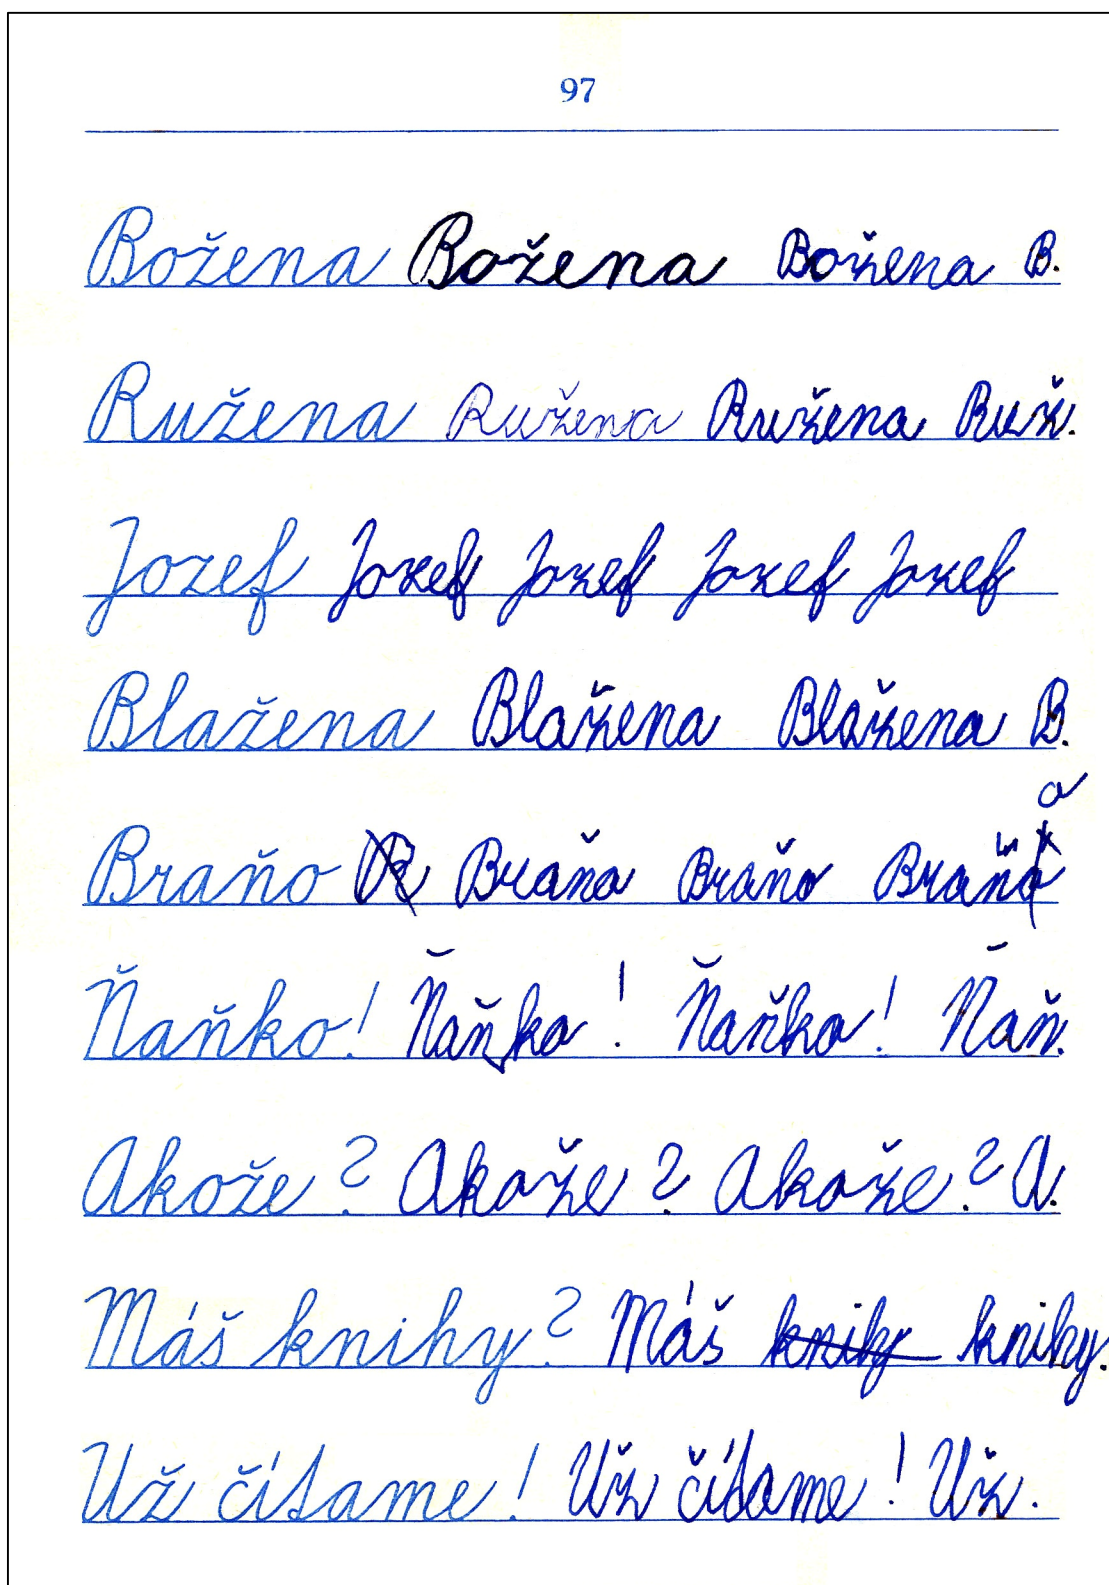 97
Božena Božena Božena B.
Ružena Ružena Ružena Ruž.
Jozef Jozef Jozef Jozef Jozef
Blažena Blažena Blažena B.
Braňo Braňo Braňo Braňo
Ňaňko! Ňaňko! Ňaňko! Ňaň.
Akože? Akože? Akože? A.
Máš knihy? Máš knihy.
Už čítame! Už čítame! Už.